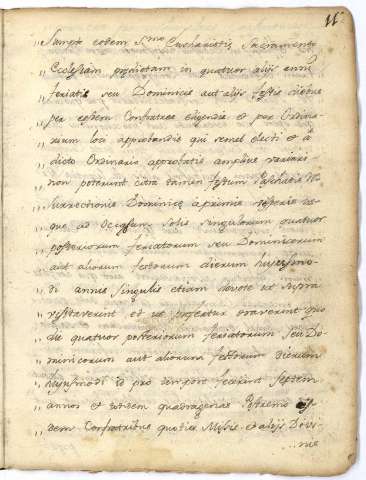 11
„ Sumpto eodem Smo Eucharistię Sacramento
„ Ecclesiam prędictam in quatuor alijs anni
„ feriatis seu Dominicis aut alijs festis diebus
„ per eosdem Confratres eligendis et per Ordina-
„ rium loci approbandis qui semel electi et à
„ dicto Ordinario approbatis amplius variari
„ non poterunt citra tamen festum Paschatis Re
„ surrectionis Dominicę à primis vesperis us-
„ que ad Occasum solis singulorum quatuor
„ posteriorum feriatorum seu Dominicorum
„ aut aliorum festorum dierum hujusmo-
„ di annis singulis etiam devote ut supra
„ visitaverint et ut prefertur oraverint quo
„ die quatuor posteriorum feriatorum seu Do-
„ minicorum aut aliorum festorum dierum
„ hujusmodi id pro tempore fecerint septem
„ annos et totidem quadragenas Postremo eis-
„ dem Confratribus quoties Missis et alijs Divi-
nis